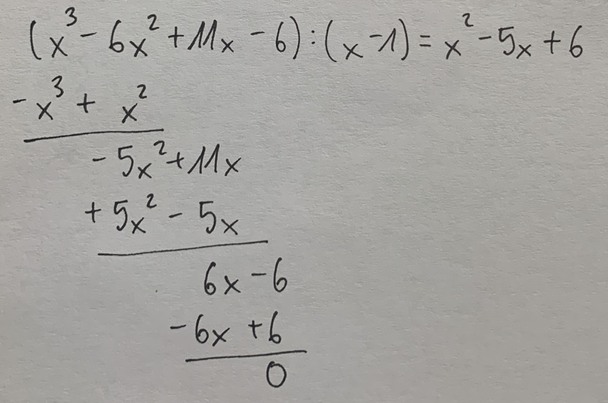 (x³ - 6x² + 11x - 6) : (x - 1) = x² - 5x + 6
- x³ + x²
- 5x² + 11x
+ 5x² - 5x
6x - 6
- 6x + 6
0